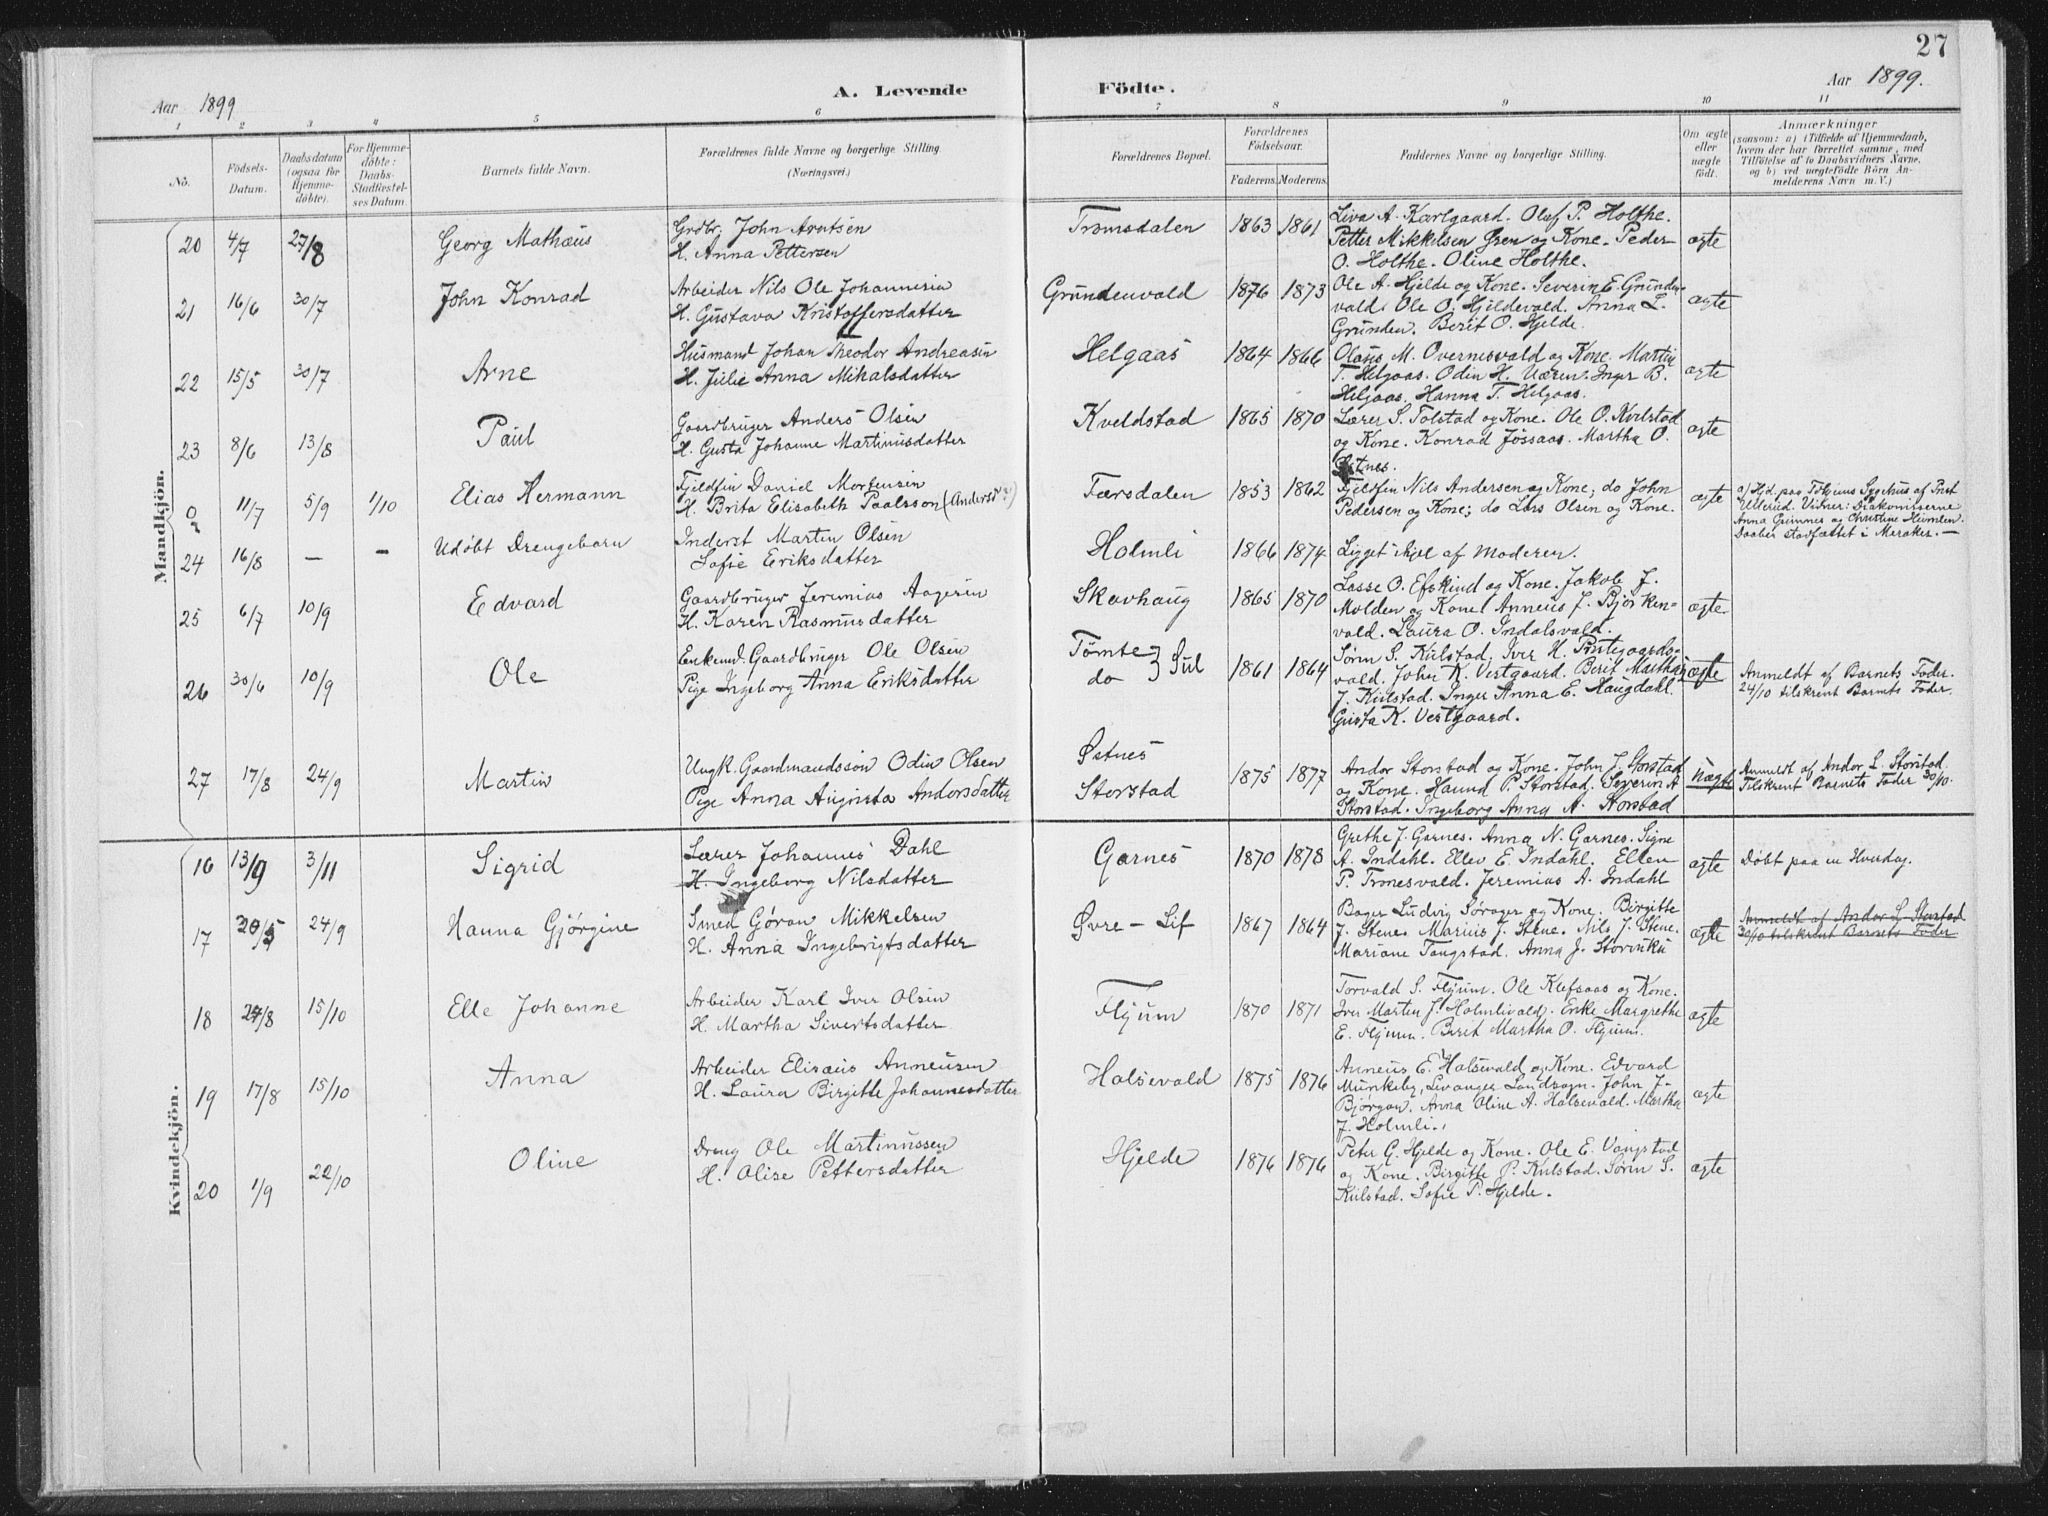 27
Aar 1899
A. Levende Födte.
Aar 1899.
1 2 3 4 5 6 7 8 9 10 11
No.
Födsels-Datum.
Daabsdatum (ogsaa for Hjemme-döbte).
For Hjemme-döbte: Daabs-Stadfæstel-ses Datum.
Barnets fulde Navn.
Forældrenes fulde Navne og borgerlige Stilling.
(Næringsvei.)
Forældrenes Bopæl.
Forældrenes Födselsaar.
Faderens. Moderens.
Faddernes Navne og borgerlige Stilling.
Om ægte eller uægte födt.
Anmærkninger
(saasom: a) i Tilfælde af Hjemmedaab, hvem der har forrettet samme, med Tilföielse af to Daabsvidners Navne, og b) ved uægtefödte Börn An-melderens Navn m. V.)
Mandkjön.
20 4/7 27/8 Georg Mathæus
Grdbr. John Arntsen
H. Anna Pettersen
Tromsdalen 1863 1861
Liva A. Karlgaard. Oluf P. Holthe.
Petter Mikkelsen Gren og Kone. Peder
O. Holthe. Oline Holthe.
ægte
21 16/6 30/7 John Konrad
Arbeider Nils Ole Johannesen
H. Gustava Kristoffersdatter
Grundenvald 1876 1873
Ole A. Hjelde og Kone. Severin E. Grunden-
vald. Ole O. Hjeldevald. Anna L.
Grunden. Berit O. Hjelde.
ægte
22 15/5 30/7 Arne
Husmand Johan Theodor Andreasen
H. Julie Anna Mikalsdatter
Helgaas 1864 1866
Olaus M. Overnesvald og Kone. Martin
T. Helgaas. Odin H. Uæren. Inger B.
Helgaas. Hanna T. Helgaas.
ægte
23 8/6 13/8 Paul
Gaardbruger Anders Olsen
H. Gusta Johanne Martinusdatter
Kveldstad 1865 1870
Lærer S. Tolstad og Kone. Ole O. Kvelstad
og Kone. Konrad Jøssaas. Martha O.
Østnes.
ægte
0 11/7 5/9 1/10 Elias Hermann
Fjeldfin Daniel Mortensen
H. Brita Elisabeth Paalsson (Andersd ?)
Færsdalen 1853 1862
Fjeldfin Nils Andersen og Kone; do John
Pedersen og Kone; do Lars Olsen og Kone.
ægte
Anna Grimnes og Christine Heimlen.
Daaben stadfæstet i Meraker. —
24 16/8 — — Udøbt Drengebarn
Inderst Martin Olsen
Sofie Eriksdatter
Holmli 1866 1874
Ligget ihjel af Moderen.
25 6/7 10/9 Edvard
Gaardbruger Jeremias Aagesen
H. Karen Rasmusdatter
Skavhaug 1865 1870
Lasse O. Efskind og Kone. Jakob J.
Molden og Kone. Anneus J. Bjørken-
vald. Laura O. Indalsvald.
ægte
26 30/6 10/9 Ole
Enkemd. Gaardbruger Ole Olsen
Pige Ingeborg Anna Eriksdatter
Tømte
do } Sul
1861 1864
Sørn S. Kulstad. Iver H. Prstegaards-
vald. John K. Vestgaard. Berit Martha
J. Kulstad. Inger Anna E. Haugdahl.
Gusta K. Vestgaard.
uægte
Anmeldt af Barnets Fader.
24/10 tilskrevet Barnets Fader.
27 17/8 24/9 Martin
Ungk. Gaardmandssøn Odin Olsen
Pige Anna Augusta Andorsdatter
Østnes
Storstad
1875 1877
Andor Storstad og Kone. John J. Storstad
og Kone. Haund P. Storstad. Severin A
Storstad. Ingeborg Anna A. Storstad
uægte
Anmeldt af Andor L. Storstad.
Tilskrevet Barnets Fader 30/10.
Kvindekjön.
16 13/9 3/11 Sigrid
Lærer Johannes Dahl
H. Ingeborg Nilsdatter
Garnes 1870 1878
Grethe J. Garnes. Anna N. Garnes. Signe
A. Indahl. Ellev E. Indahl. Ellen
P. Tronesvald. Jeremias A. Indahl
ægte
Døbt paa en Hverdag.
17 20/5 24/9 Hanna Gjørgine
Smed Gøran Mikkelsen
H. Anna Ingebrigtsdatter
Øvre – Lif 1867 1864
Bager Ludvig Sørager og Kone. Birgitte
J. Stene. Marius J. Stene. Nils J. Stene.
Mariane Tangstad. Anna J. Storviken
ægte
Anmeldt af Andor L. Storstad
30/10 tilskrevet Barnets Fader
18 24/8 15/10 Elle Johanne
Arbeider Karl Iver Olsen
H. Martha Sivertsdatter
Flyum 1870 1871
Torvald S. Flyum. Ole Klefsaas og Kone.
Iver Martin J. Holmlivald. Enke Margrethe
E. Flyum. Berit Martha O. Flyum.
ægte
19 17/8 15/10 Anna
Arbeider Elisæus Anneusen
H. Laura Birgitte Johannesdatter
Halsevald 1875 1876
Anneus E. Halsevald og Kone. Edvard
Munkeby, Levanger Landsogn. John J.
Bjørgan. Anna Oline A. Halsevald. Martha
J. Holmli.
ægte
20 1/9 22/10 Oline
Dreng Ole Martinussen
H. Olise Pettersdatter
Hjelde 1876 1876
Peter G. Hjelde og Kone. Ole E. Vangstad
og Kone. Birgitte P. Kulstad. Sørn S.
Kulstad. Sofie P. Hjelde.
ægte